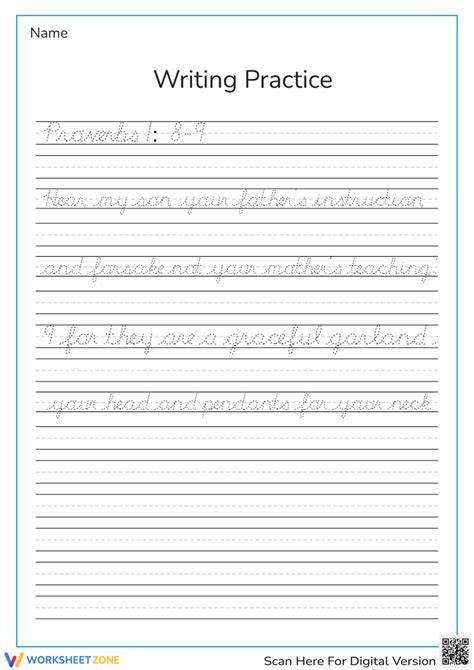 Name
Writing Practice
Proverbs 1: 8-9
Hear, my son your father's instruction
and forsake not your mother's teaching;
9 for they are a graceful garland
your head and pendants for your neck
WORKSHEETZONE
Scan Here For Digital Version